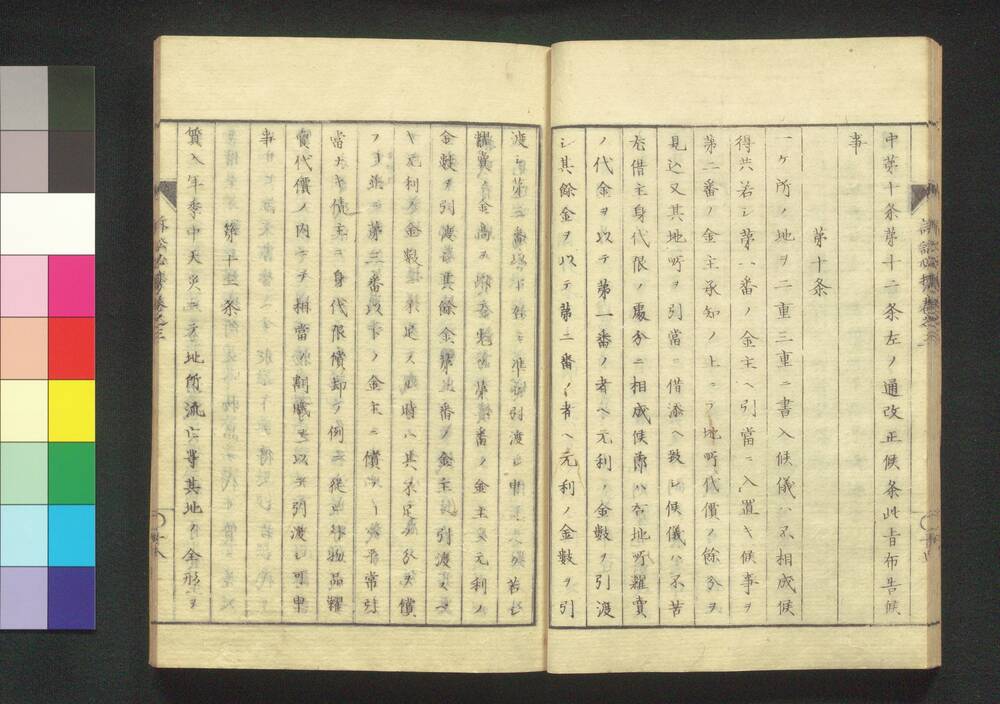 中第十条第十二条左ノ通改正候条此旨布告候
事
第十条
一ヶ所ノ地ヲ二重三重ニ書入候儀ハ不相成候
得共若シ第一番ノ金主ヘ引當ニ入置キ候事ヲ
第二番ノ金主承知ノ上ニテ地所代價ノ餘分ヲ
見込又其地所ヲ引當ニ借添ヘ致シ候儀ハ不苦
右借主身代限ノ處分ニ相成候節ハ右地所糶賣
ノ代金ヲ以テ第一番ノ者ヘ元利ノ金數ヲ引渡
シ其餘金ヲ以テ第二番ノ者ヘ元利ノ金數ヲ引
渡シ第三番以下ハ右ニ準シ引渡シ申
糶賣ノ金高ヲ第一番ノ金主ヘ元利ノ
金數ヲ引渡シ其餘金第二番ノ金主ヘ引渡スヘ
キ元利ノ金數ニ不足スル時ハ其不足ノ分ヲ償
ノ金主ニ償フ
當ナキ借主ニ身代限償却ノ例ニ從ヒ物品糶
賣代價ノ内ニテ相當ノ割賦ヲ以テ引渡シ可申
事
第十二条
質入年季中天災ニテ地所流亡等其地ノ全形ヲ
訴訟必携巻之三
訴訟必携巻之三